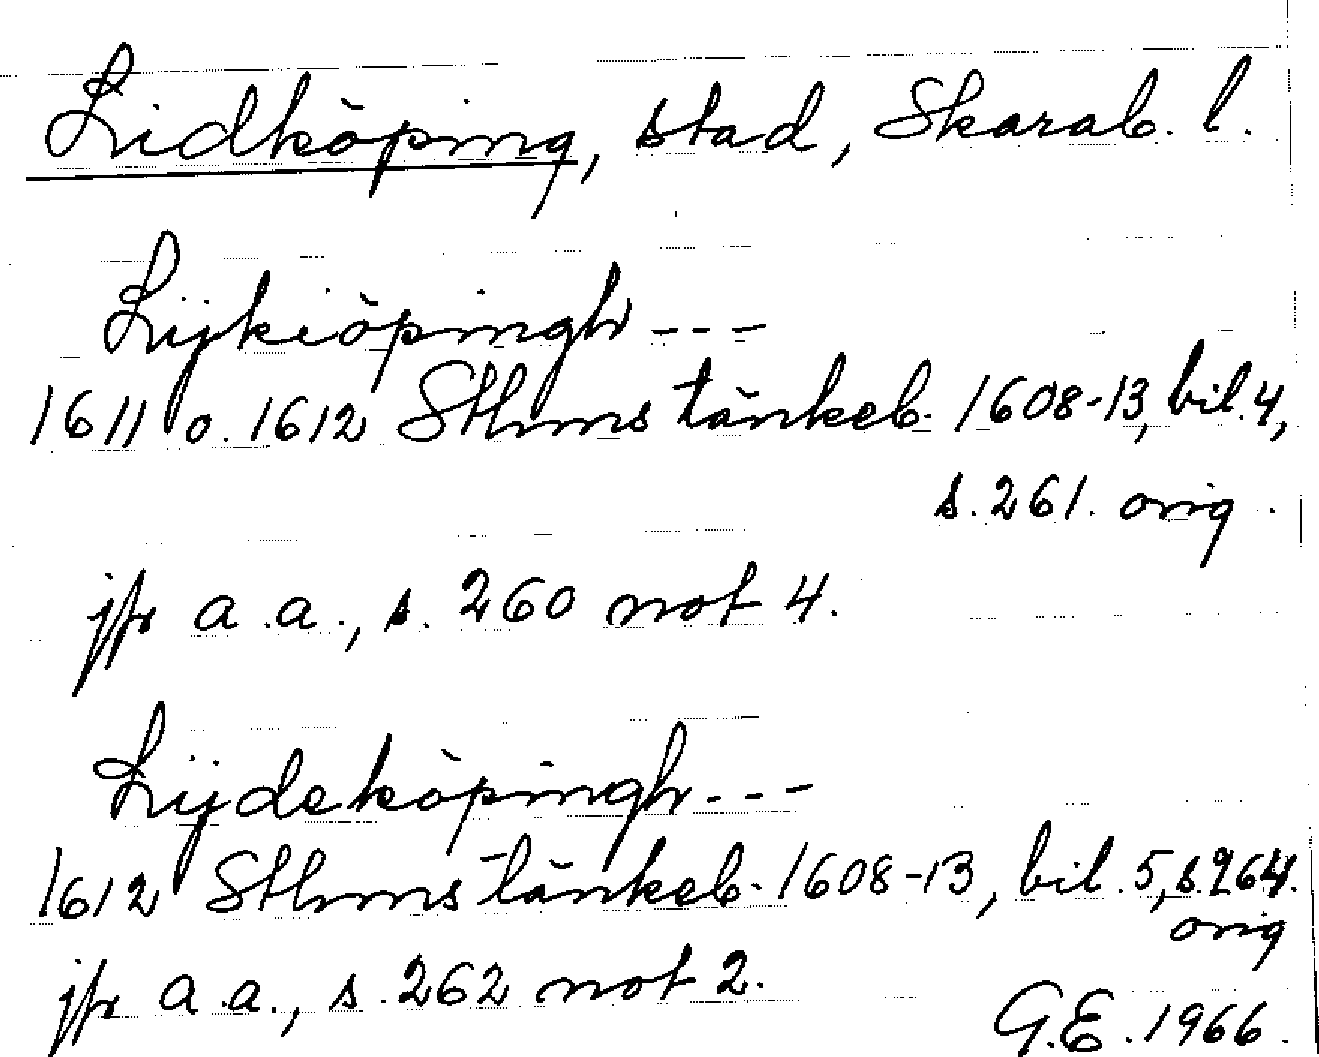 Lidköping, stad, Skarab. l.
Lijkiöpingh ---
1611 o. 1612 Sthms tänkeb. 1608-13, bil. 4,
s. 261. orig.
jfr a.a., s. 260 not 4.
Lijdeköpingh ---
1612 Sthms tänkeb. 1608-13, bil. 5, s. 264.
orig
jfr a.a., s. 262 not 2.
G.E. 1966.